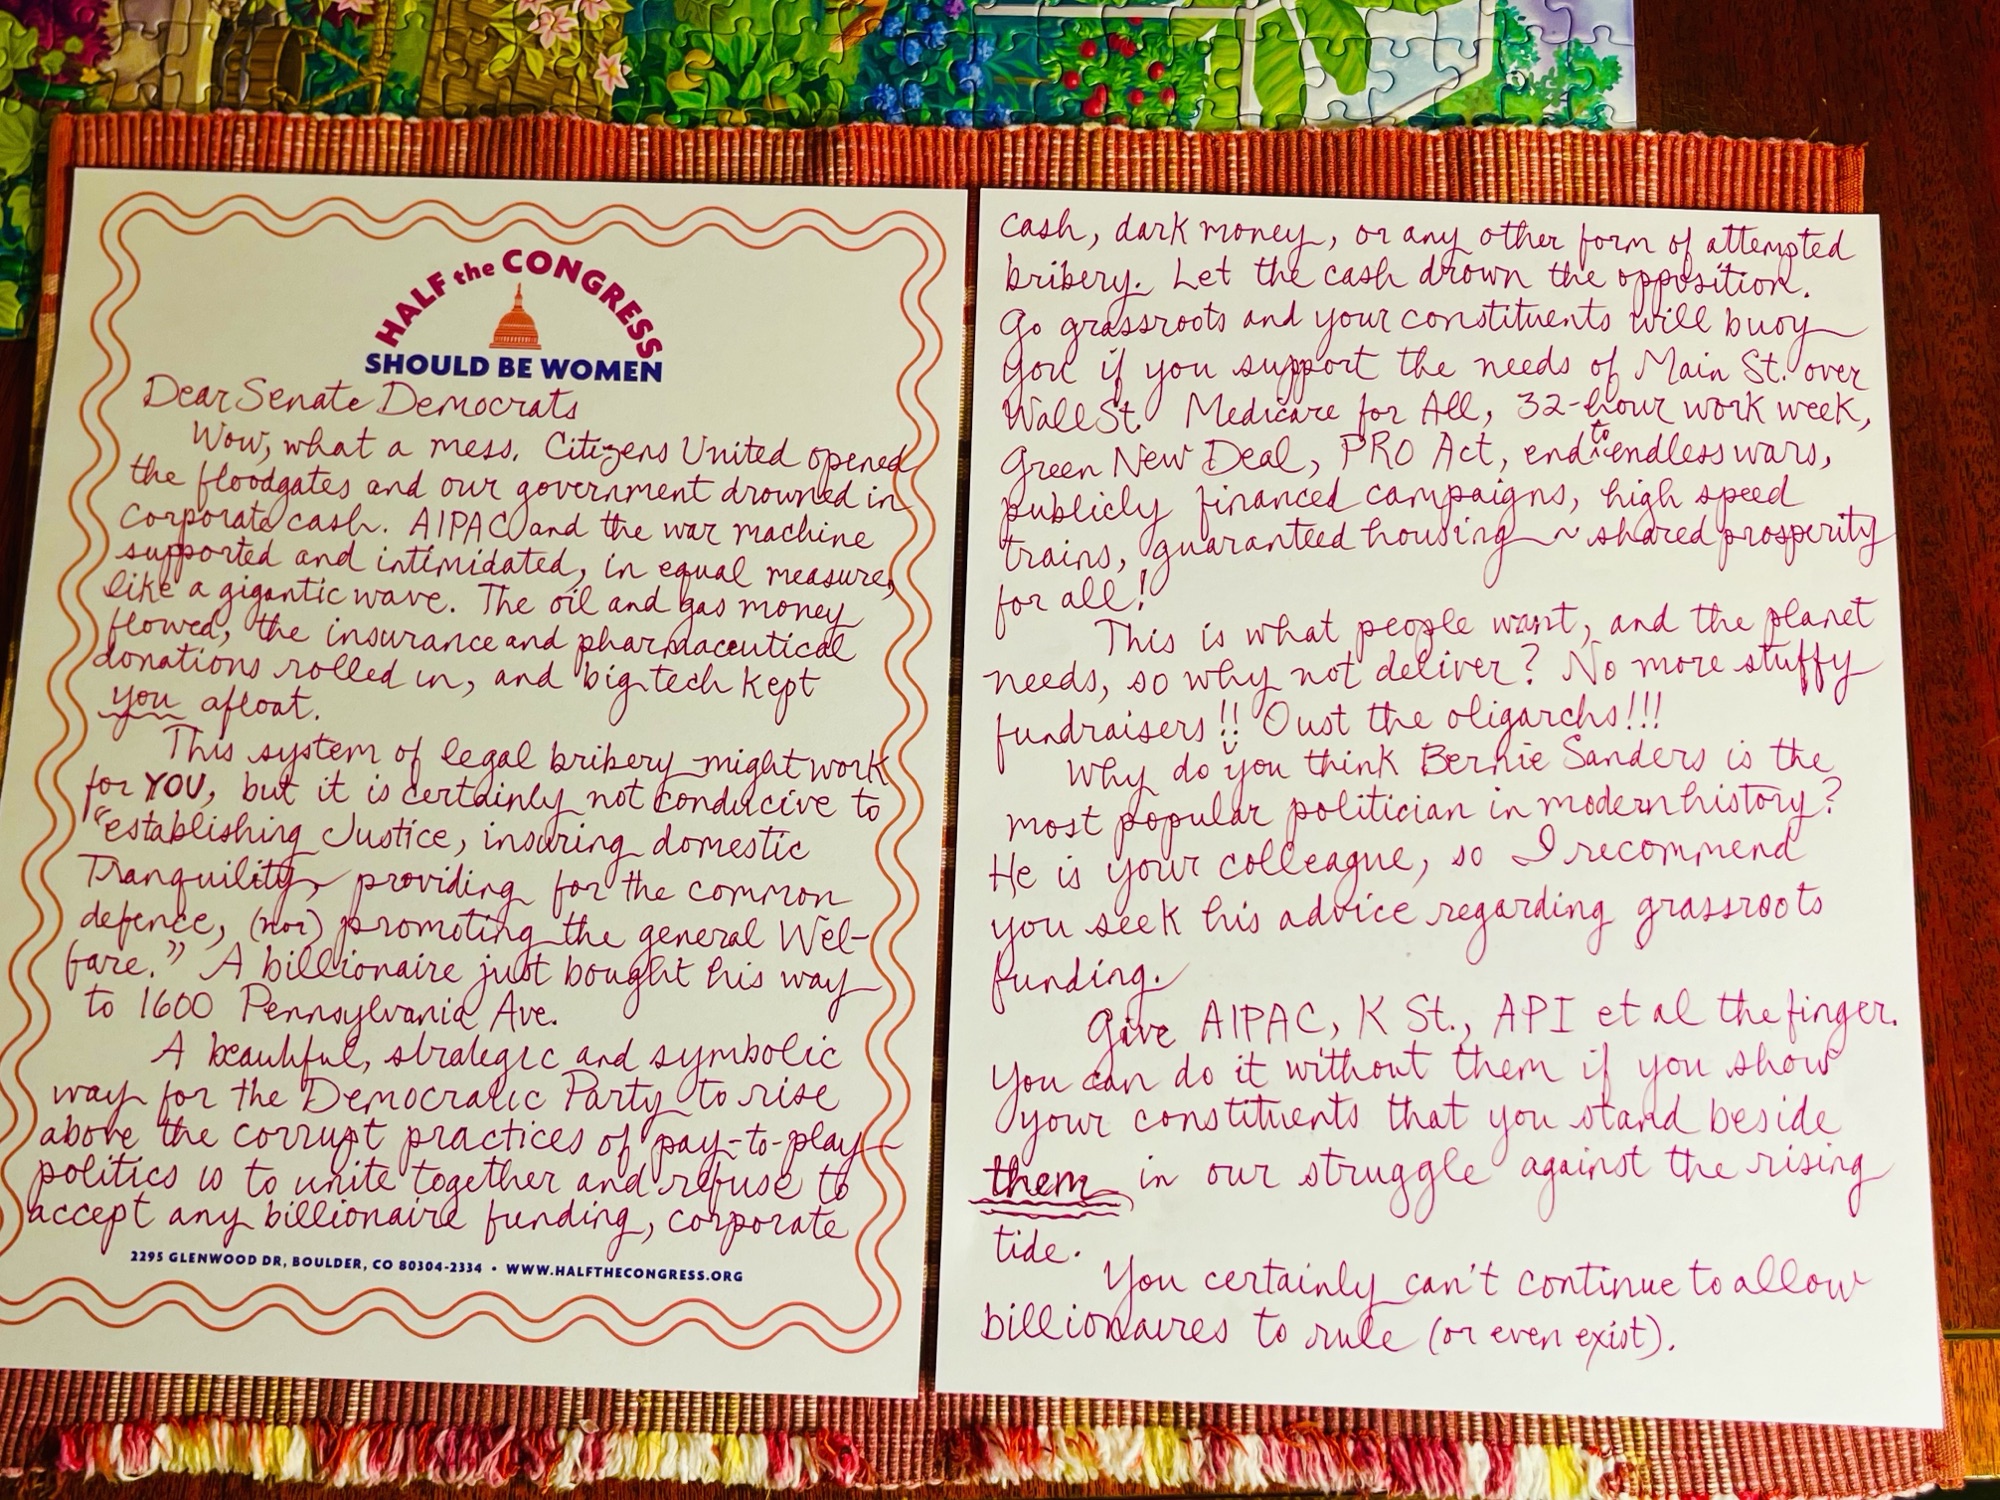 HALF the CONGRESS
SHOULD BE WOMEN
Dear Senate Democrats
Wow, what a mess. Citizens United opened
the floodgates and our government drowned in
corporate cash. AIPAC and the war machine
supported and intimidated, in equal measure,
like a gigantic wave. The oil and gas money
flowed, the insurance and pharmaceutical
donations rolled in, and big tech kept
you afloat.
This system of legal bribery might work
for YOU, but it is certainly not conducive to
"establishing Justice, insuring domestic
Tranquility, providing for the common
defence, (nor) promoting the general Wel-
fare." A billionaire just bought his way
to 1600 Pennsylvania Ave.
A beautiful, strategic and symbolic
way for the Democratic Party to rise
above the corrupt practices of pay-to-play
politics is to unite together and refuse to
accept any billionaire funding, corporate
2295 GLENWOOD DR, BOULDER, CO 80304-2334 • WWW.HALFTHECONGRESS.ORG
cash, dark money, or any other form of attempted
bribery. Let the cash drown the opposition.
Go grassroots and your constituents will buoy
you if you support the needs of Main St. over
Wall St. Medicare for All, 32-hour work week,
Green New Deal, PRO Act, end to endless wars,
publicly financed campaigns, high speed
trains, guaranteed housing ~ shared prosperity
for all!
This is what people want, and the planet
needs, so why not deliver? No more stuffy
fundraisers!! Oust the oligarchs!!!
Why do you think Bernie Sanders is the
most popular politician in modern history?
He is your colleague, so I recommend
you seek his advice regarding grassroots
funding.
Give AIPAC, K St., API et al the finger.
You can do it without them if you show
your constituents that you stand beside
them in our struggle against the rising
tide.
You certainly can't continue to allow
billionaires to rule (or even exist).